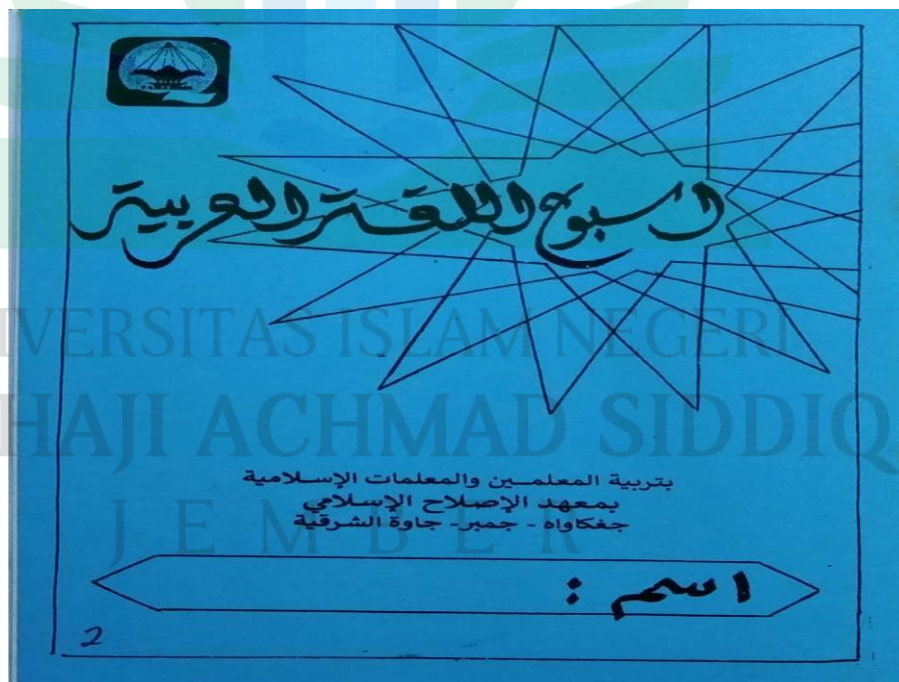 اسبوع اللغة العربية
UNIVERSITAS ISLAM NEGERI
HAJI ACHMAD SIDDIQ
JEMBER
بتربية المعلمين والمعلمات الإسلامية
بمعهد الإصلاح الإسلامي
جغكاواه - جمبر - جاوة الشرقية
اسم :
2